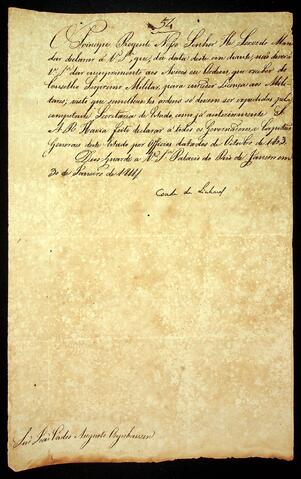 54
O Principe Regente Nosso Senhor He Servido Man
dar declarar a V. S.ª que, da data desta em diante, não deverá
V. S.ª dar cumprimento aos Avisos ou Ordens, que receber do
Conselho Supremo Militar, para conceder Licenças aos Mili
tares; visto que semelhantes ordens só devem ser expedidas pela
competente Secretaria de Estado, como já anteriormente S.
A. R. Havia feito declarar a todos os Governadores, e Capitaens
Generais deste Estado por Officios datados de Outubro de
Deos Guarde a V. S.ª Palacio do Rio de Janeiro em
30 de Janeiro de 1811
Conde de Linhares
Snr. João Carlos Augusto Oeynhausen